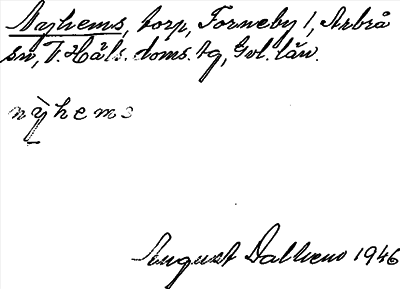 Nyhems, torp, Forneby 1, Arbrå
sn, V. Häls. doms. tg, Gvl. län.
nỳhems
August Dalhem 1946